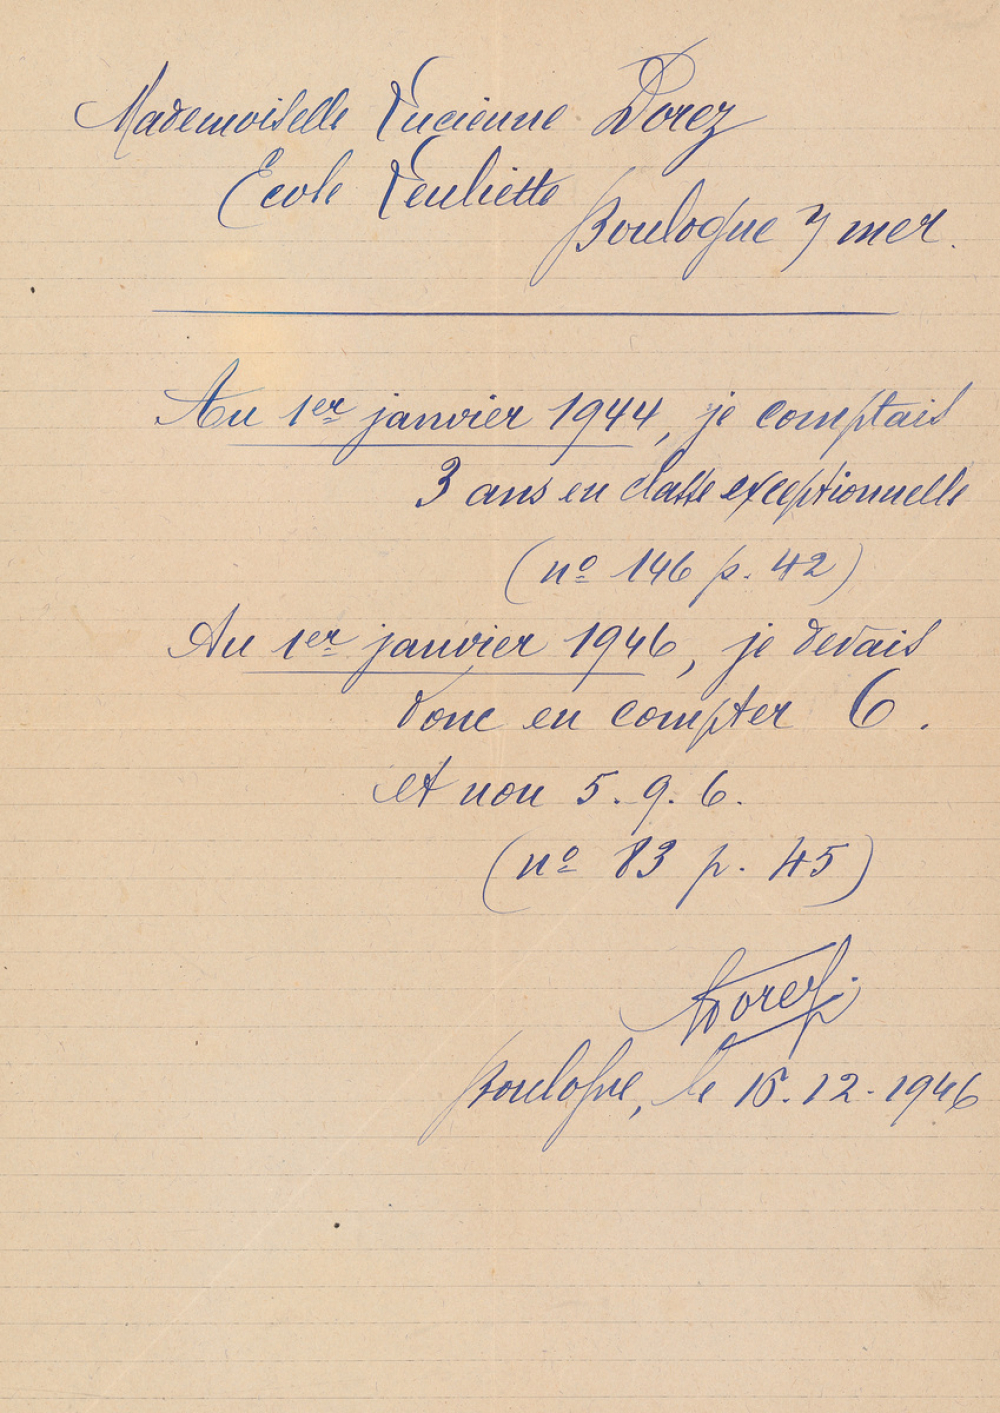 Mademoiselle Lucienne Dorez
Ecole Leuliette
Boulogne s/ mer.
Au 1er janvier 1944, je comptais
3 ans en classe exceptionnelle
(nº 146 p. 42)
Au 1er janvier 1946, je devais
donc en compter 6.
et non 5. 9. 6.
(nº 83 p. 45)
Dorez
Boulogne, le 12. 1946